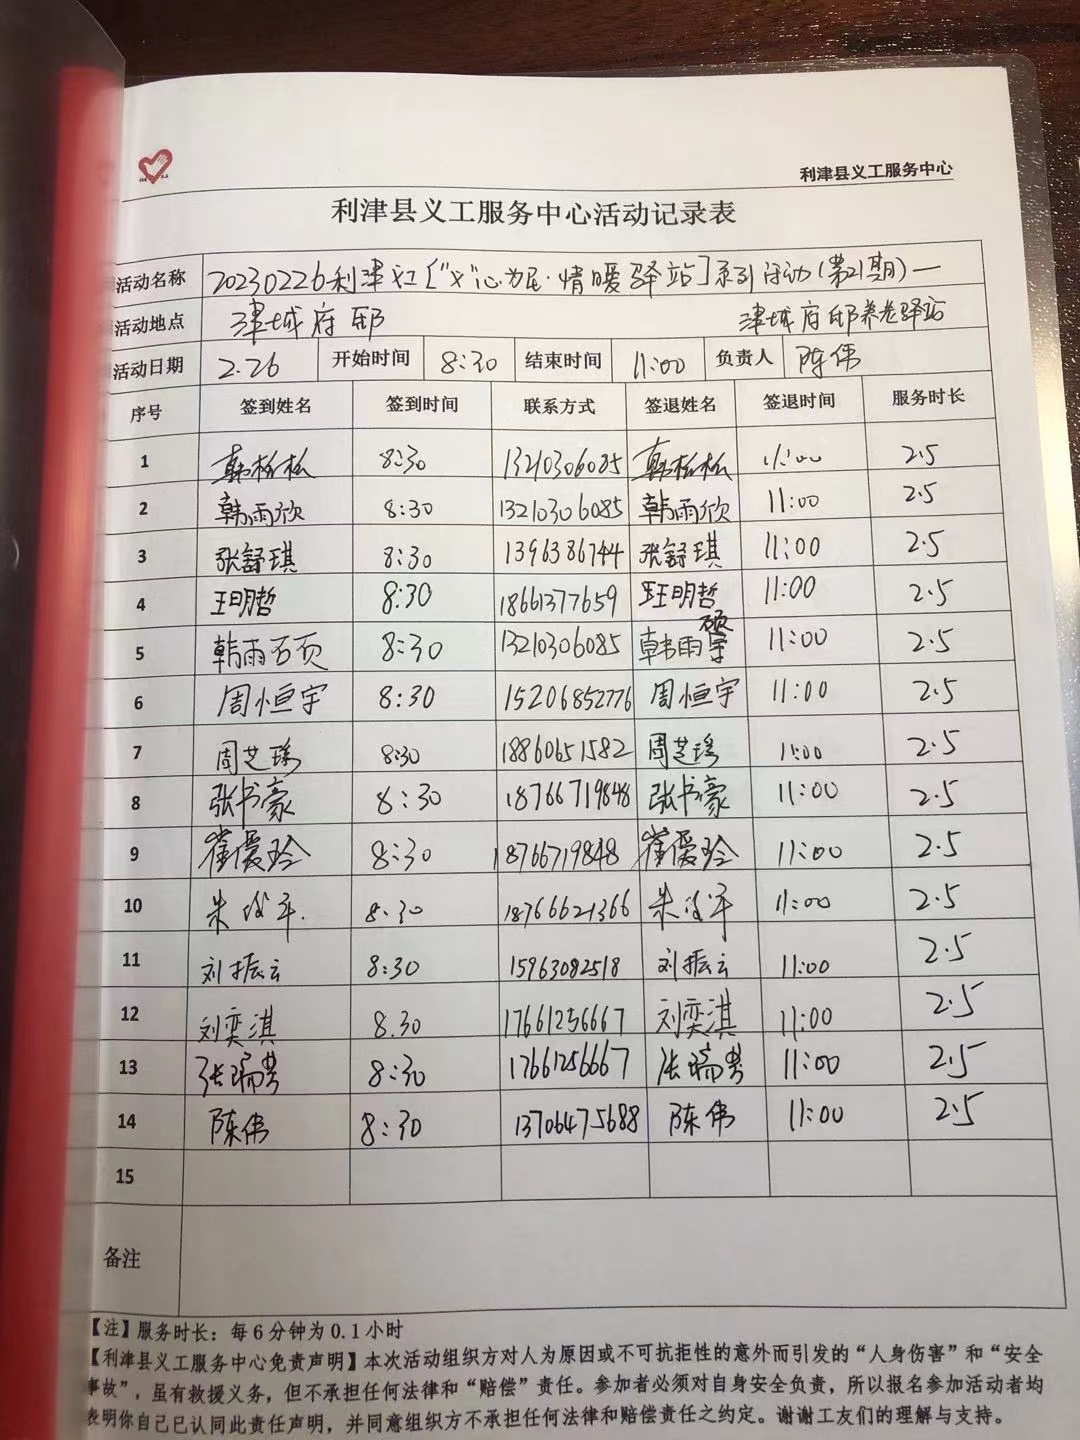 利津县义工服务中心
利津县义工服务中心活动记录表
活动名称 20230226利津义工["义"心为民·情暖驿站]系列活动(第21期)一
活动地点 津城府邸 津城府邸养老驿站
活动日期 2.26 开始时间 8:30 结束时间 11:00 负责人 陈伟
序号 签到姓名 签到时间 联系方式 签退姓名 签退时间 服务时长
1 韩松松 8:30 13210306085 韩松松 11:00 2.5
2 韩雨欣 8:30 13210306085 韩雨欣 11:00 2.5
3 张舒琪 8:30 1396386744 张舒琪 11:00 2.5
4 王明哲 8:30 18661377659 王明哲 11:00 2.5
5 韩雨硕 8:30 13210306085 韩雨硕 11:00 2.5
6 周恒宇 8:30 15206852776 周恒宇 11:00 2.5
7 周芝瑶 8:30 18860651582 周芝瑶 11:00 2.5
8 张书豪 8:30 18766719848 张书豪 11:00 2.5
9 崔爱玲 8:30 18766719848 崔爱玲 11:00 2.5
10 朱俊平 8:30 18766621366 朱俊平 11:00 2.5
11 刘振云 8:30 15963082518 刘振云 11:00 2.5
12 刘奕淇 8.30 17661256667 刘奕淇 11:00 2.5
13 张瑞芳 8:30 17661256667 张瑞芳 11:00 2.5
14 陈伟 8:30 13706475688 陈伟 11:00 2.5
15
备注
【注】服务时长：每6分钟为0.1小时
【利津县义工服务中心免责声明】本次活动组织方对人为原因或不可抗拒性的意外而引发的“人身伤害”和“安全
事故”，虽有救援义务，但不承担任何法律和“赔偿”责任。参加者必须对自身安全负责，所以报名参加活动者均
表明你自己已认同此责任声明，并同意组织方不承担任何法律和赔偿责任之约定。谢谢工友们的理解与支持。